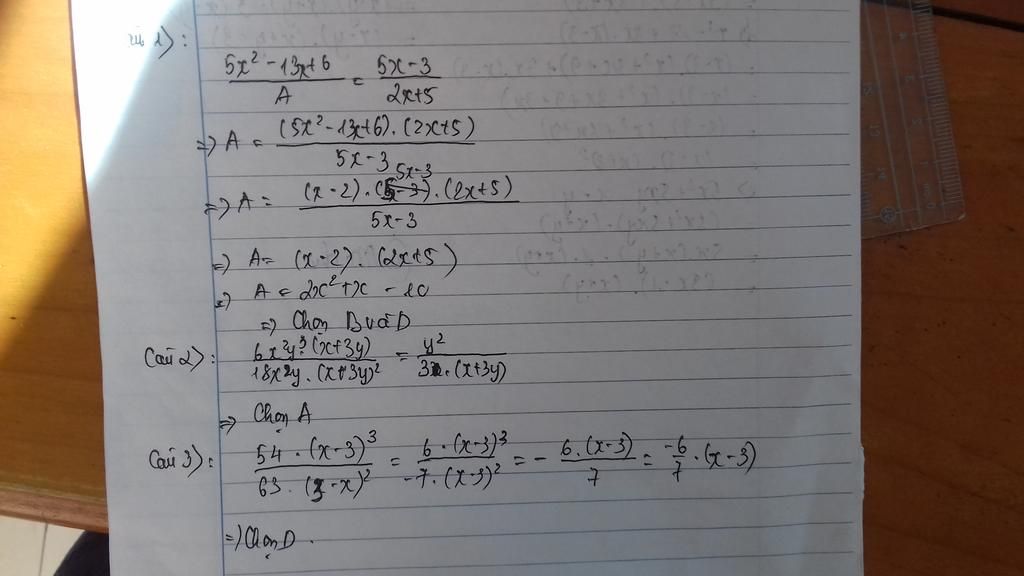 1):
(5x² - 13x + 6)/A = (5x - 3)/(2x + 5)
=> A = ((5x² - 13x + 6) . (2x + 5))/(5x - 3)
=> A = ((x - 2) . (5x - 3) . (2x + 5))/(5x - 3)
=> A = (x - 2) . (2x + 5)
=> A = 2x² + x - 10
=> Chọn B và D
Câu 2): (6x²y³ (x + 3y))/(18x²y . (x + 3y)²) = y²/(3 . (x + 3y))
=> Chọn A
Câu 3): (54 . (x - 3)³)/(63 . (3 - x)²) = (6 . (x - 3)³)/(-7 . (x - 3)²) = - (6 . (x - 3))/7 = -6/7 . (x - 3)
=> Chọn D.